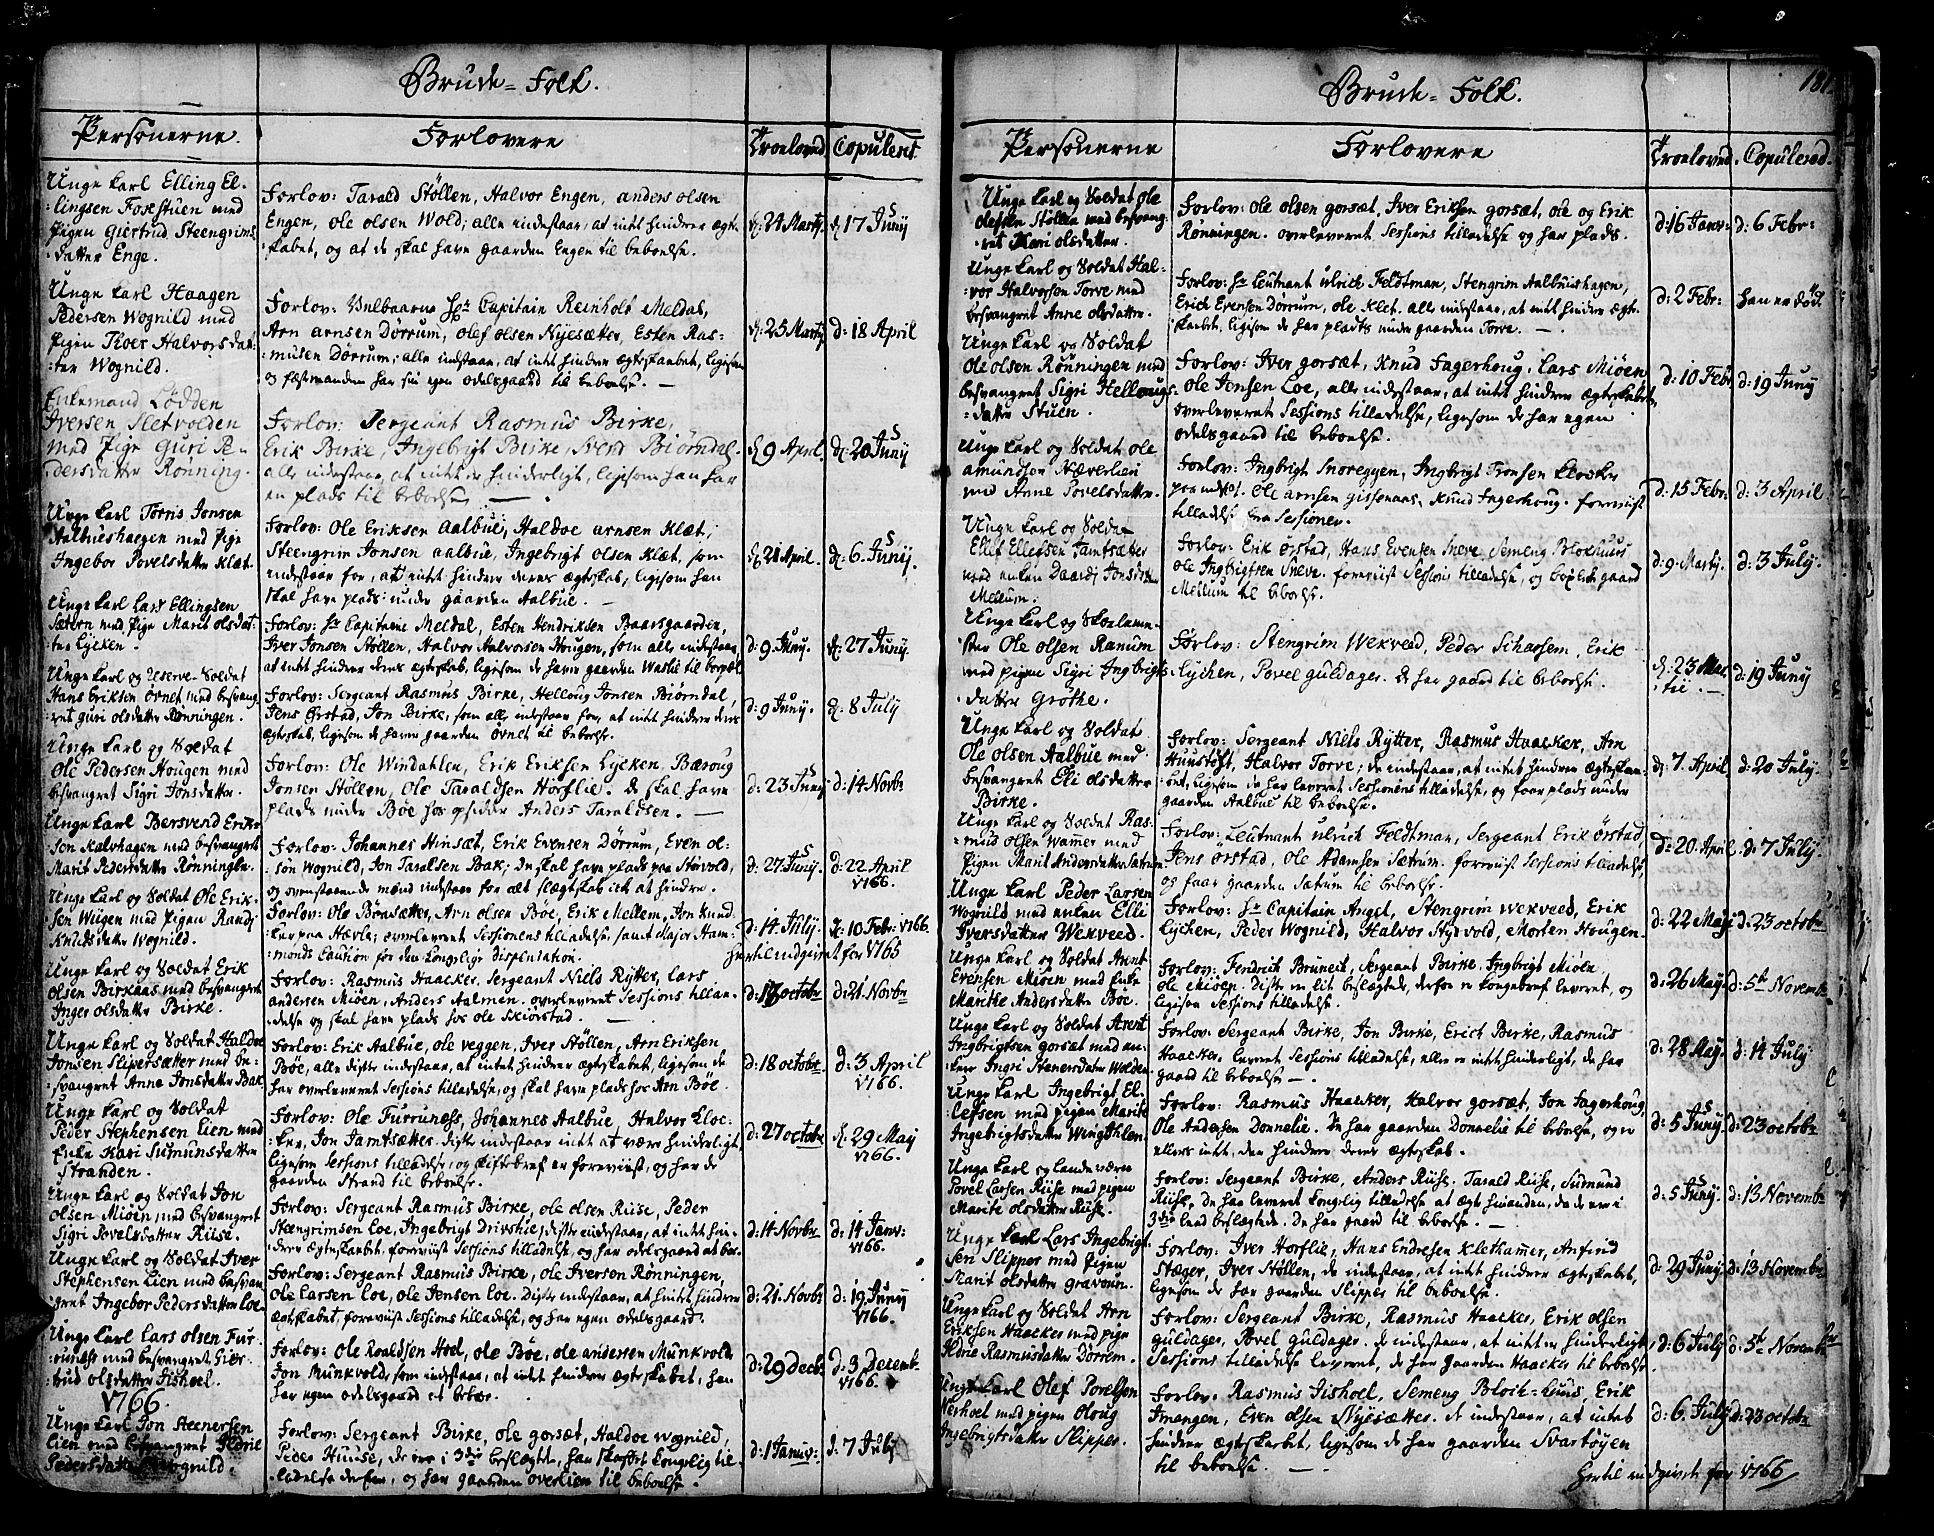 Brude-Folk.
Personerne. Forlovere Troeloved Copuleret.
Unge karl Elling El-
:lingsen Foxstuen med
Pigen Giertrud Steengrims
datter Enge.
Forlov: Tarald Støllen, Halvor Engen, anders olsen
Engen, ole olsen Wold; alle indestaar, at intet hindrer ægte
skabet, og at de skal have gaarden Engen til beboelse.
d: 24 Martz. d: 17 Juny
Unge karl Haagen
Pedersen Wognild med
Pigen Kioer Halvorsdat-
:ter Wognild.
Forlov: Velbaarne Hr Capitain Reinholt Meldal,
Arn arnsen Dørrum, Olef olsen Nyesætter, Esten Ras-
:musen Dørrum; alle indstaar, at intet hindrer ægteskabet, ligesom
og fæstmanden har sin egen odelsgaard til beboelse. —
d: 25 Martz d: 18 April
Enkemand Lødden
Iversen Sletvolden
med Pige Guri Pe-
dersdatter Rønning.
Forlov: Sergeant Rasmus Birke,
Erik Birke, Ingebrigt Birke, Svend Biørndal,
alle indestaar, at intet er hinderligt, ligesom han har
en plads til beboelse —
d: 9 April. d: 20 Juny
Unge karl Torris Jonsen
Aalbueshaegen med Pige
Ingebor Povelsdatter Klæt.
Forlov: Ole Eriksen Aalbue, Haldoe arnsen Klæt,
Steengrim Jonsen aalbue, Ingebrigt olsen Klæt, som
indestaar for, at intet hindrer deres ægteskab, ligesom han
skal have plads under gaarden Aalbue. —
d: 21 April. d: 6. Juny.
Unge karl Lars Ellingsen
Sætern med Pige Marit olsdat:
ter Lycken.
Forlov: Hr Capitaine Meldal, Esten Hendriksen Baarsgaarden,
Iver Jonsen Støllen, Halvor Halvorsen Hougen, som alle indestaar,
at intet hindrer deres ægteskab, ligesom de have gaarden Waslie til
d: 9 Juny. d: 27 Juny.
Unge karl og Reserve-Soldat
Hans Eriksen Øvnet med besvang
ret guri olsdatter Rønningen.
Forlov: Sergeant Rasmus Birke, Helloug Jonsen Biørndal,
Jens Ørstad, Jon Birke, som alle indestaar for, at intet hindrer deres
ægteskab, ligesom de have gaarden Øvnet til beboelse.
d: 9 Juny. d: 8 July
Unge karl og Soldat
Ole Pedersen Hougen med
besvangret Sigri Jonsdatter.
Forlov: Ole Windahlen, Erik Eriksen Lycken, Bæroug
Jonsen Støllen, Ole Taraldsen Horslie. De skal have
plads under Bøe hos Anders Taraldsen. —
d: 23 Juny d: 14 Novbr
Unge karl Bersvend Erik-
sen Kalvhagen med besvangret
Marit Pedersdatter Rønningen.
Forlov: Johannes Hinsæt, Erik Evensen Dørrum, Even ol-
søn Wognild, Jon Taralsen Bak; De skal have plads paa Storvold,
og ovenstaaende mænd indestaar for alt slægtskab ick at hindre.
d: 27 Juny. d: 22 April
1766.
Unge karl og Soldat Ole Erik-
sen Wiigen med Pigen Randi
Knudsdatter Wognild.
Forlov: Ole Børsætter, Arn olsen Bøe, Erik Mellem, Jon Knud-
sen paa Hevle; overleveret Sessionens tilladelse, samt Major Ham-
monds Caution for den Kongelige Dispensation.
d: 14 July. d: 10 Febr: 1766.
hertil indgivet for 1765
Unge karl og Soldat Erik
olsen Birkaas med besvangret
Inger olsdatter Birke.
Forlov: Rasmus Haacker, Sergeant Niels Rytter, Lars
andersen Miøen, Anders Aalmen. overleveret Sessions tilla-
delse og skal have plads hos ole Skiørstad. —
d: 17 octobr d: 21. Novbr
Unge karl og Soldat Haldoe
Jonsen Slipersætter med be-
svangret Anne Jonsdatter Bak
Forlov: Erik Aalbue, ole veggen, Iver Støllen, Arn Eriksen
Bøe, alle disse indestaar, at intet hindrer ægteskabet, ligesom de
har overleveret Sessions tilladelse, og skal have plads hos Arn Bøe.
d: 18 octobr d: 3 April
1766.
Unge karl og Soldat
Peder Stephensen Lien med
Enke Kari Sumunsdatter
Stranden.
Forlov: Ole Furruness, Johannes Aalbue, Halvor Cloc-
ker, Jon Jamtsætter. Disse indestaar intet at være hinderligt,
ligesom Sessions tilladelse, og skiftebref er foreviist, og har de
gaarden Strand til beboelse.
d: 27 octobr d: 29 Maij
1766.
Unge karl og Soldat Jon
olsen Miøen, med besvangret
Sigri Povelsdatter Riise.
Forlov: Sergeant Rasmus Birke, ole olsen Riise, Peder
Steengrimsen Loe, Ingebrigt Drivstue, disse indestaar, at intet hin-
drer Egteskabet, foreviist Sessions tilladelse, og har odelsgaard at
d: 14 Novbr d: 14 Janv:
1766.
Unge karl og Soldat Iver
Stephensen Lien med besvan
gret Ingebor Pedersdatter Loe
Forlov: Sergeant Rasmus Birke, ole Iversen Rønningen,
ole Larsen Loe, ole Jensen Loe. Disse indestaar, at intet hindrer
Ægteskabet, foreviist Sessions tilladelse, og har egen odelsgaard.
d: 21. Novbr d: 19 Juny
1766.
Unge karl Lars olsen Fur-
runess med besvangret Gier-
:trud olsdatter Fishoel.
Forlov: Ole Roaldsen Hoel, ole Bøe, ole andersen Munkvold
Jon Munkvold, som indestaar, at intet hindrer ægteskabet, han
har egen odelsgaard at beboe.
d: 29 Decb: d: 3 Decemb.
1766.
1766.
Unge karl Jon Steenersen
Lien med besvangret Ildrie
Pedersdatter Wognild.
Forlov: Sergeant Birke, ole gorsæt, Haldoe Wognild,
Peder Huuse, de ere i 3die beslægtet, han skaffet kongelig til-
ladelse derfor, og har gaarden overlien til beboelse.
d: 1 Januv: d: 7 July
Brude-Folk. 181
Personerne Forlovere Troeloved. Copulered.
Unge karl og Soldat Ole
olessen Støllen med besvang-
ret Mari olsdatter.
Forlov: ole olsen gorsæt, Iver Eriksen gorsæt, ole og Erik
Rønningen. overleveret Sessions tilladelse og har plads.
d: 16 Janv: d: 6 Febr:
Unge karl og Soldat Hal-
vor Halvorsen Torve med
besvangret Anne olsdatter.
Forlov: Hr Leutnant ulrich Feldtman, Stengrim Aalbueshagen,
Erich Evensen Dørrum, ole Klet. alle indestaar, at intet hindrer ægte-
skabet, ligesom de har pladts under gaarden Torve. —
d: 2 Febr: han er død
Unge karl og Soldat
Ole olsen Rønningen med
besvangret Sigri Hellougs-
datter Stuen.
Forlov: Iver gorsæt, Knud Fagerhoug, Lars Miøen
ole Jensen Loe, alle indestaar, at intet hindrer ægteskabet,
overleveret Sessions tilladelse, ligesom de har egen
odelsgaard til beboelse.
d: 10 Febr d: 19 Juny
Unge karl og Soldat ole
amundsøn Næverlien
med Anne Povelsdatter.
Forlov: Ingbrigt Snoreggen, Ingbrigt Tronsen Klocker
paa indset. Ole arnsen gissenaas, Knud Fagerhoug. foreviist
tilladelse fra Sessionen.
d: 15 Febr: d: 3 April
Unge karl og Solda-
Ellef Ellefsen Jamtsætter
med enken Jonsdatter
Mellum.
Forlov: Erik Ørstad, Hans Evensen Sneve, Semeng Blokhuus
ole Ingbrigtsen Sneve. foreviist Sessions tilladelse, og gaard
Mellum til beboelse.
d: 9 Martz. d: 3 July.
Unge karl og Skolemæ-
ster Ole olsen Ranum
med pigen Sigri Ingbrigts-
datter Grøthe.
Forlov: Stengrim Wekveed, Peder Scharsem, Erik
Lychen, Povel guldager. De har gaard til beboelse.
d: 23 Mar-
tii. — d: 19 Juny
Unge karl og Soldat
Ole olsen Aalbue med
besvangret Eli olsdatter
Birke.
Forlov: Sergeant Niels Rytter, Rasmus Haacker, Arn
Huustoft, Halvor Torve; de indestaar, at intet hindrer Ægteska-
bet, ligesom de har leveret Sessionens tilladelse, og faar plads under
gaarden Aalbue til beboelse.
d: 7. April d: 20 July.
Unge karl og Soldat Ras-
mus olsen Wamer med
Pigen Marit Andersdatter Sætrum
Forlov: Leutnant ulrich Feldtman, Sergeant Erik ørstad,
Jens ørstad, ole Adamsen Sætrum. foreviist Sessions tilladelse,
og faar gaarden Sætrum til beboelse.
d: 20. April d: 7 July.
Unge karl Peder Larsen
Wognild med enken Elli
Iversdatter Wekveed.
Forlov: Hr Capitain Angel, Stengrim wekveed, Erik
Lychen, Peder Wognild, Halvor Stydvold, Morten Hougen.
d: 22 Maji d: 23 octobr
Unge karl og Soldat Arnt
Evensen Miøen med Enke
Marithe Andersdatter Boe.
Forlov: Fendrik Bruneck, Sergeant Birke, Ingbrigt Miøen
ole Miøen. Disse ere lit beslægtede, derfor er kongebref leveret, og
ligesom Sessions tilladelse.
d: 26 May. d: 5te Novembr
Unge karl og Soldat Arent
Ingbrigtsen gorsæt med en-
ken Ingri Stenersdatter Wolden.
Forlov: Sergeant Birke, Jon Birke, Erich Birke, Rasmus
Haacker. leveret Sessions tilladelse, ellers er intet hinderligt, de har
gaard til beboelse —.
d: 28 May. d: 14 July
Unge karl Ingebrigt El-
lefsen med pigen Marit
Ingebrigtsdatter Wingthlen.
Forlov: Rasmus Haacker, Halvor gorsæt, Jon Fagerhoug,
Ole Andersen Donnelie. De har gaarden Donnelie til beboelse, og er
ellers intet, der hindrer deres ægteskab.
d: 5 Juny. d: 23 octobr
Unge karl og landeværn
Povel Larsen Riise med pigen
Marite olsdatter Riise.
Forlov: Sergeant Birke, Anders Riise, Tarald Riise, Sumund
Riise, de har leveret kongelig tilladelse at ægte hinanden, da de ere i
3die leed beslægtede. De har gaard til beboelse. —
d: 5 Juny. d: 13 Novembr
Unge karl Lars Ingebrigt
sen Slipper med Pigen
Marit olsdatter gravoun.
Forlov: Iver Horslie, Hans Endresen Kletkamer, Anfind
Stæger, Iver Støllen, de indestaar, at intet hindrer Ægteskabet,
ligesom de har gaarden Slipper til beboelse.
d: 29 Juny d: 13 Novembr
Unge karl og Soldat Arn
Eriksen Haacker med pige
Ildrie Rasmusdatter Dørrem.
Forlov: Sergeant Birke, Rasmus Haacker, Erik olsen
guldager, Povel guldager. de indestaar, at intet er hinderligt,
Sessions tilladelse leveret, de har gaarden Haacker til beboelse
d: 6 July d: 5te Novembr
Unge karl Olef Povelsøn
Nerhoel med pigen Oloug
Ingebrigtsdatter Slipper.
Forlov: Rasmus Fishoel, Semeng Block-huus, Erik
Imangen, Even olsen Nyesætter. de indestaar, at intet
hindrer ægteskabet, ligesom de har gaarden Svartøyen
til beboelse. —
d: 6. July d: 23 octobr
Hertil indgivet for 1766